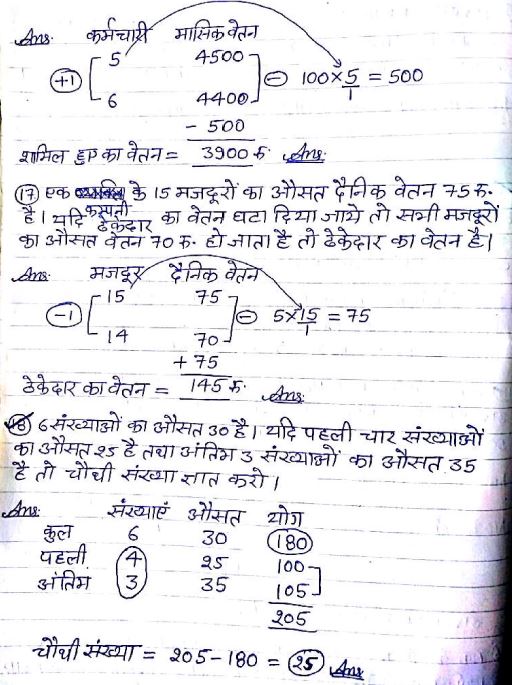 Ans. कर्मचारी मासिक वेतन
+1 5 4500 − 100×5/1 = 500
6 4400
- 500
शामिल हुए का वेतन = 3900 रु. Ans.
17 एक के 15 मजदूरों का औसत दैनिक वेतन 75 रु.
कम्पनी
है। यदि ठेकेदार का वेतन घटा दिया जाये तो सभी मजदूरों
का औसत वेतन 70 रु. हो जाता है तो ठेकेदार का वेतन है।
Ans. मजदूर दैनिक वेतन
-1 15 75 − 5×15/1 = 75
14 70
+ 75
ठेकेदार का वेतन = 145 रु. Ans.
18 6 संख्याओं का औसत 30 है। यदि पहली चार संख्याओं
का औसत 25 है तथा अंतिम 3 संख्याओं का औसत 35
है तो चौथी संख्या ज्ञात करो।
Ans. संख्याएं औसत योग
कुल 6 30 180
पहली 4 25 100
अंतिम 3 35 105
205
चौथी संख्या = 205 - 180 = 25 Ans